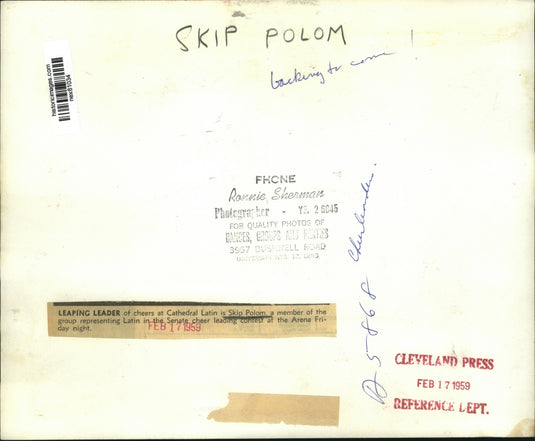 SKIP POLOM
backing to come !
historicimages.com
nex61034
PHONE
Ronnie Sherman
Photographer - YE. 2 6645
FOR QUALITY PHOTOS OF
DANCES, GROUPS AND PARTIES
3957 BUSHNELL ROAD
UNIVERSITY HTS. 18, OHIO
A 5868 Cheerleaders.
LEAPING LEADER of cheers at Cathedral Latin is Skip Polom, a member of the
group representing Latin in the Senate cheer leading contest at the Arena Fri-
day night.
FEB 17 1959
CLEVELAND PRESS
FEB 17 1959
REFERENCE DEPT.